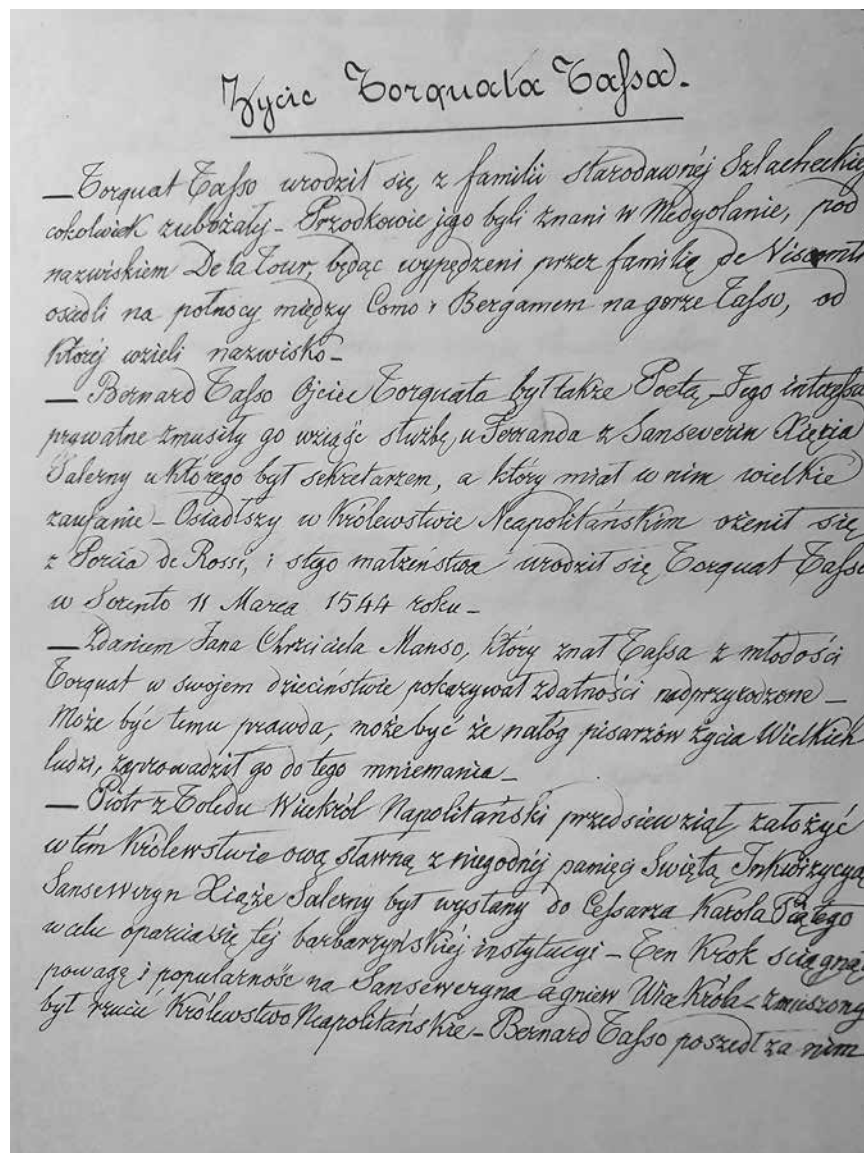 Życie Torquata Tassa.
— Torquat Tasso urodził się z familii starodawnéj Szlacheckiéj
cokolwiek zubożałéj – Przodkowie jego byli znani w Medyolanie, pod
nazwiskiem De la Tour, będąc wypędzeni przez familią de Visconti
osiedli na połnocy między Como i Bergamem na gorze Tasso, od
któréj wzieli nazwisko –
— Bernard Tasso Ojciec Torquata był także Poetą – Jego interessa
prywatne zmusiły go wziąść służbę u Ferranda z Sanseverin Xięcia
Salerny u którego był sekretarzem, a który miał w nim wielkie
zaufanie – Osiadłszy w Królewstwie Neapolitańskim ożenił się
z Porcia de Rossi, i stego małżeństwa urodził się Torquat Tasso
w Sorento 11 Marca 1544 roku –
— Zdaniem Jana Chrzciciela Manso, który znał Tassa z młodości
Torquat w swojem dzieciństwie pokazywał zdatności nadprzyrodzone –
Może być temu prawda, może być że nałóg pisarzów życia Wielkich
ludzi, zaprowadził go do tego mniemania –
— Piotr z Toledu Wicekról Napolitański przedsiewziął założyć
w tém Królewstwie ową sławną z niegodnéj pamięci Swiętą Inkwizycyą
Sanseweryn Xiąże Salerny był wysłany do Cessarza Karola Piątego
w celu oparcia się téj barbarzyńskiéj instytucyi – Ten Krok sciągnął
powagę i popularność na Sanseweryna a gniew Wice Króla – Zmuszony
był rzucić Królewstwo Neapolitańskie – Bernard Tasso poszedł za nim